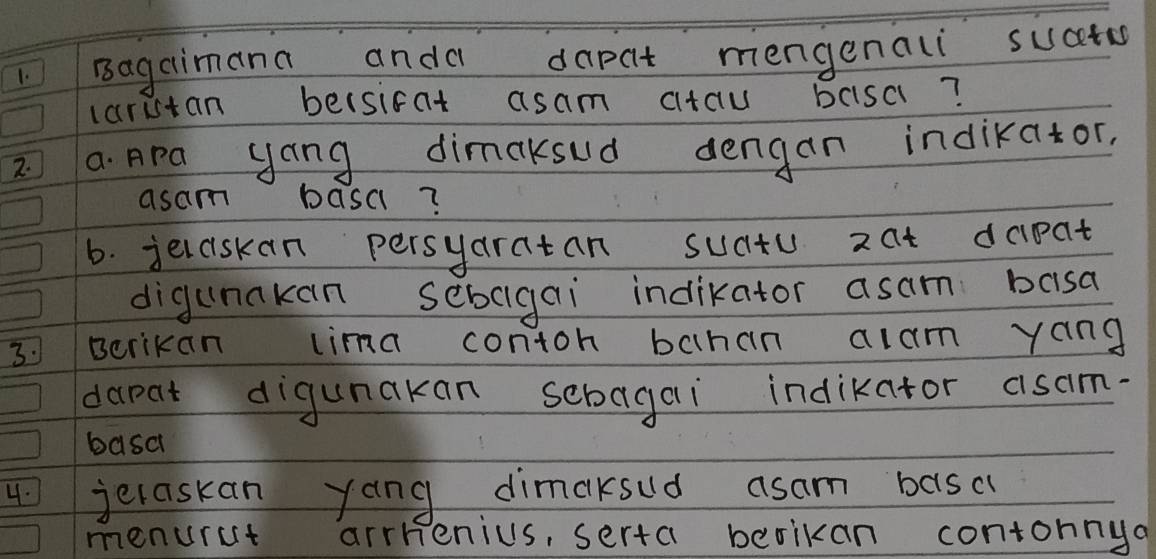 1. Bagaimana anda dapat mengenali suatu
larutan bersifat asam atau basa?
2. a. Apa yang dimaksud dengan indikator,
asam basa?
b. jelaskan persyaratan suatu zat dapat
digunakan sebagai indikator asam basa
3. Berikan lima contoh bahan alam yang
dapat digunakan sebagai indikator asam-
basa
4. jelaskan yang dimaksud asam basa
menurut arrhenius, serta berikan contohnya